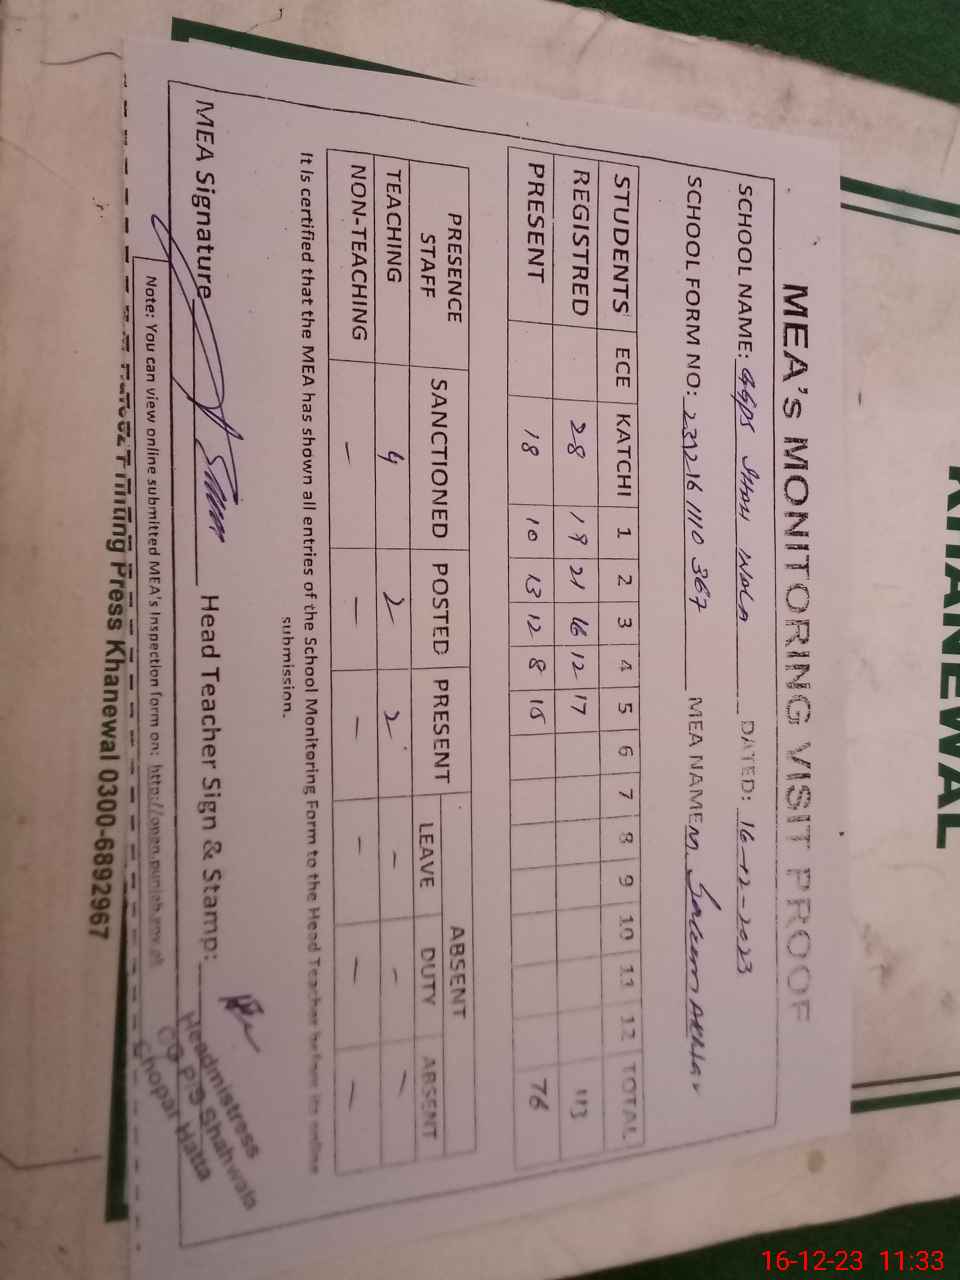 KHANEWAL
MEA's MONITORING VISIT PROOF
SCHOOL NAME: GGPS Shah Wala DATED: 16-12-2023
SCHOOL FORM NO: 231216 1110 367 MEA NAME M Saleem Akhtar
STUDENTS ECE KATCHI 1 2 3 4 5 6 7 8 9 10 11 12 TOTAL
REGISTRED 28 19 21 16 12 17 113
PRESENT 18 10 13 12 8 15 76
PRESENCE STAFF SANCTIONED POSTED PRESENT ABSENT
LEAVE DUTY ABSENT
TEACHING 4 2 2 - - -
NON-TEACHING - - - - - -
It is certified that the MEA has shown all entries of the School Monitoring Form to the Head Teacher before its online
submission.
MEA Signature Head Teacher Sign & Stamp:
Headmistress
GG P/S Shahwala
Chopar Hatta
Note: You can view online submitted MEA's Inspection form on: http://open.punjab.gov.pk
Printing Press Khanewal 0300-6892967
16-12-23 11:33